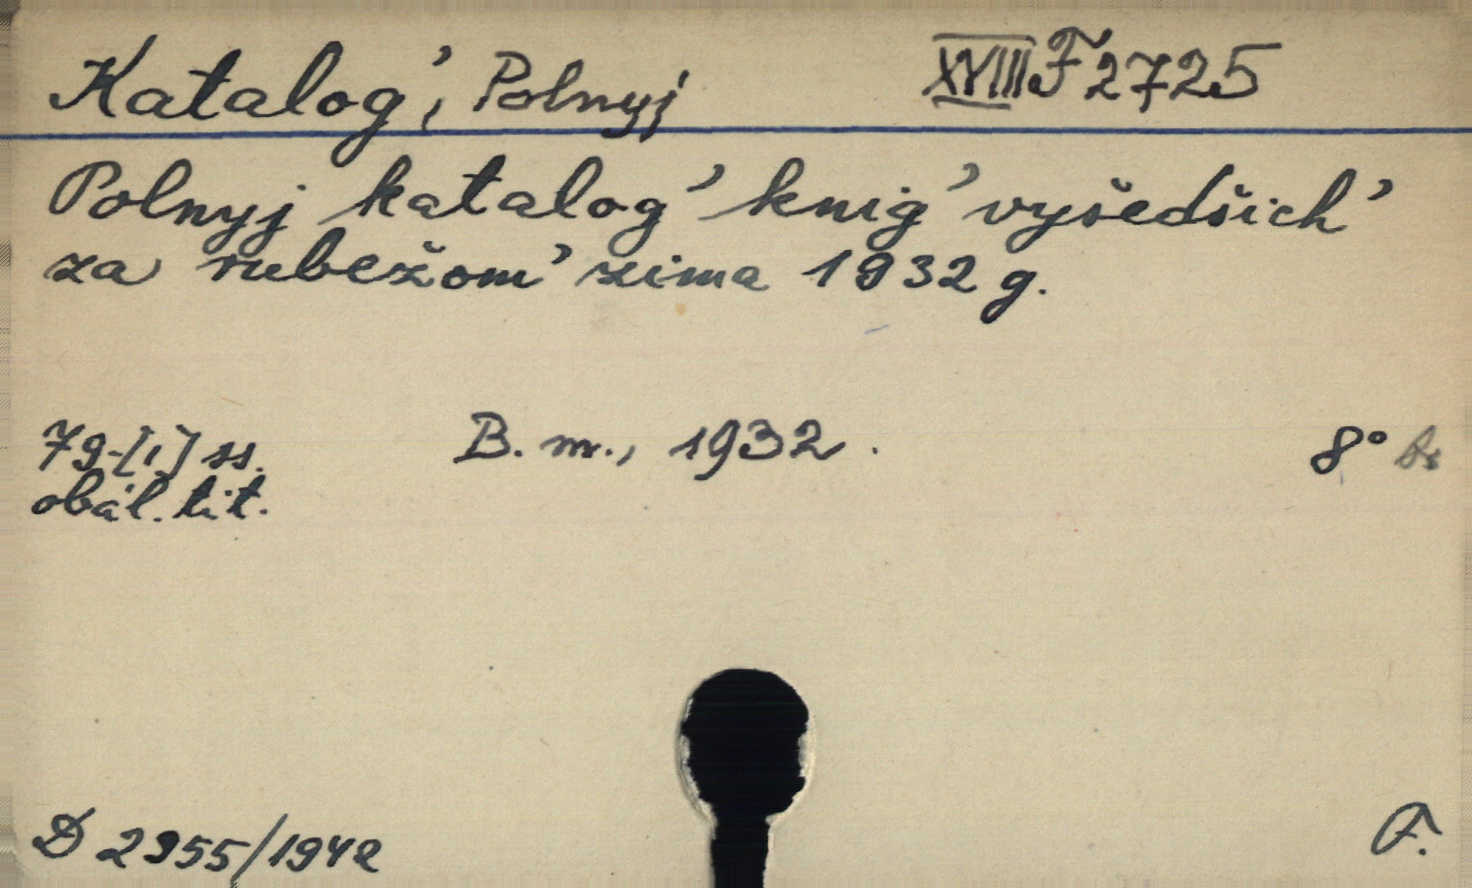 Katalog', Polnyj XVIII F 2725
Polnyj katalog' knig' vyšedšich'
za rubežom' zima 1932 g.
79-[1] ss. B. m., 1932. 8°
obál. tit.
D 2955/1942
F.